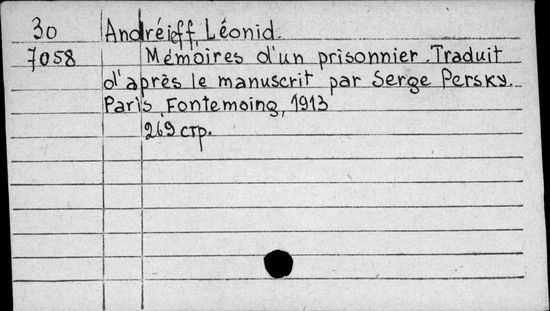 30 Andréieff, Léonid.
7058 Mémoires d'un prisonnier. Traduit
d'après le manuscrit par Serge Persky.
Paris, Fontemoing, 1913
269 стр.